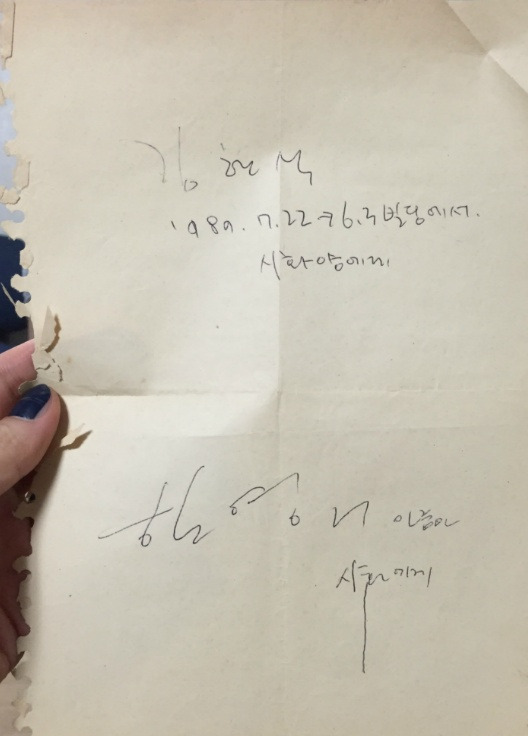 김현식
1989. 7.22 6.3빌딩에서.
시화양에게
한영애
시화에게